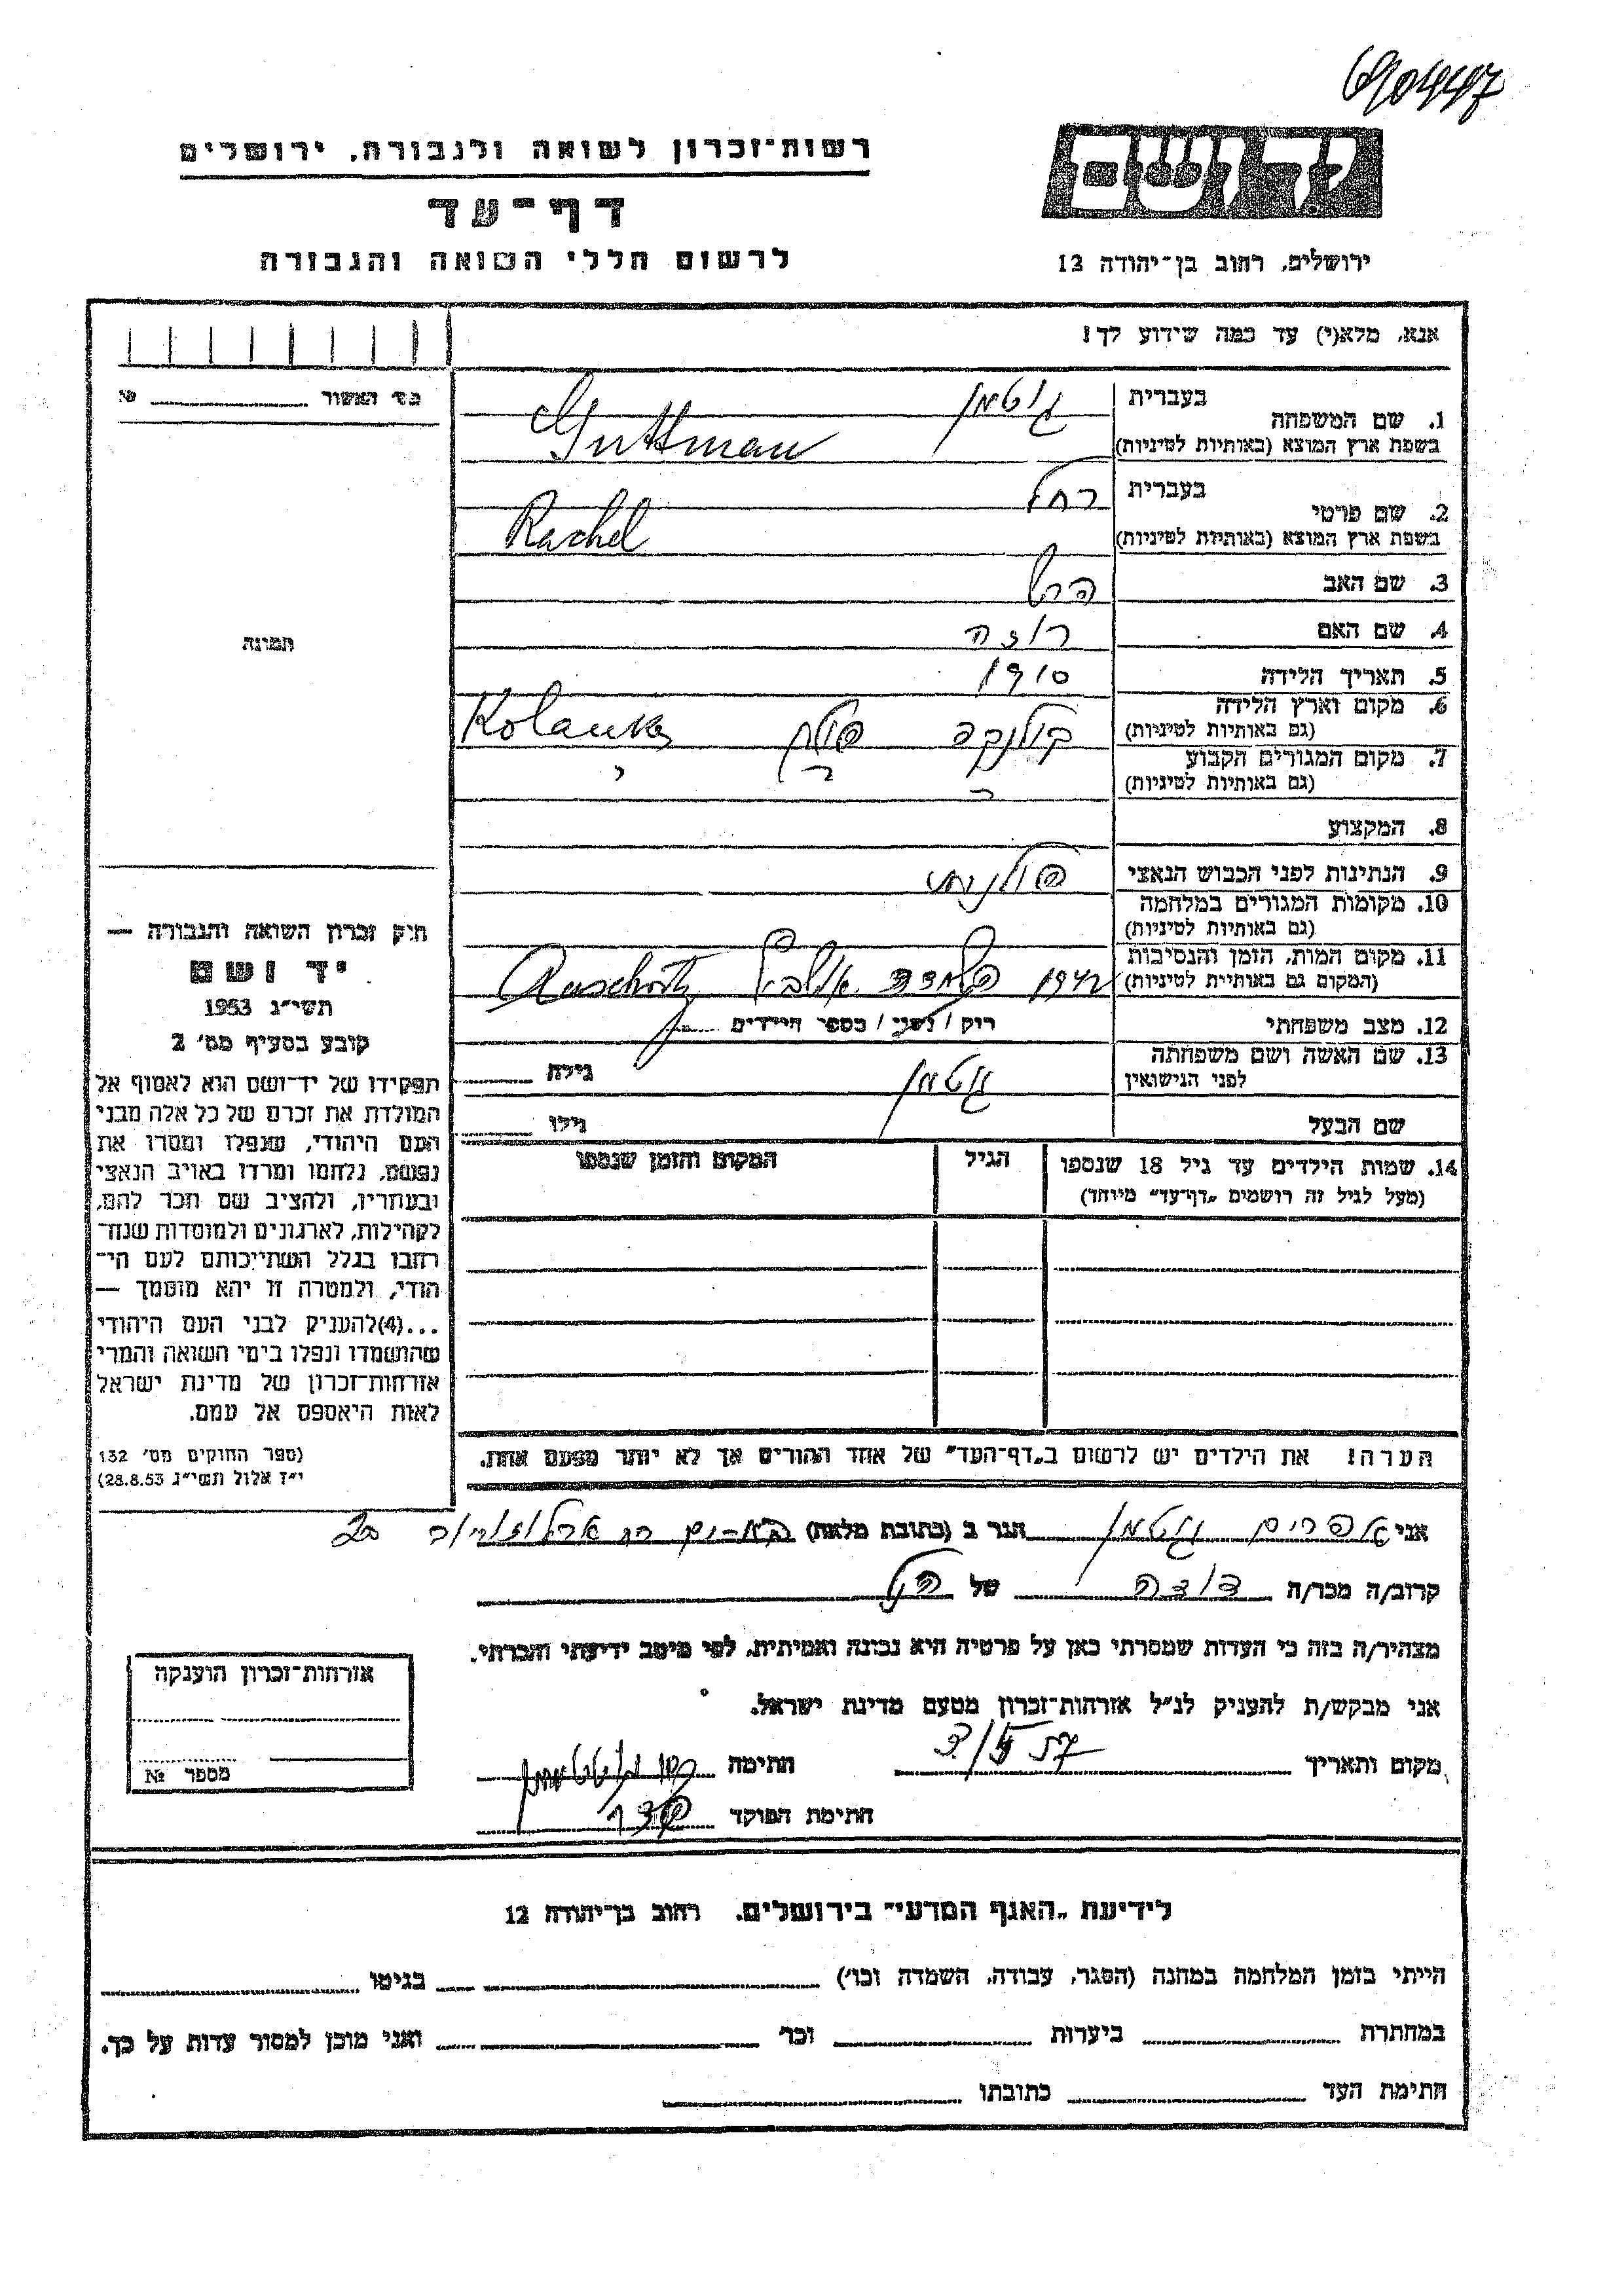 690447
רשות־זכרון לשואה ולגבורה, ירושלים
דף־עד
לרשום חללי השואה והגבורה
יד ושם
ירושלים, רחוב בן־יהודה 12
אנא, מלא(י) עד כמה שידוע לך!
מס׳ האשור № ........
1. שם המשפחה
בעברית גוטמן
בשפת ארץ המוצא (באותיות לטיניות) Guttman
2. שם פרטי
בעברית רחל
בשפת ארץ המוצא (באותיות לטיניות) Rachel
3. שם האב הרש
4. שם האם רוזה
5. תאריך הלידה 1910
6. מקום וארץ הלידה
(גם באותיות לטיניות) קולנקה פולין Kolanka
7. מקום המגורים הקבוע
(גם באותיות לטיניות) " " "
8. המקצוע
9. הנתינות לפני הכבוש הנאצי פולנית
10. מקומות המגורים במלחמה
(גם באותיות לטיניות)
11. מקום המות, הזמן והנסיבות
(המקום גם באותיית לטיניות) 1942 Auschwitz
12. מצב משפחתי רוק / נשוי / מספר הילדים
13. שם האשה ושם משפחתה
לפני הנישואין גוטמן גילה
שם הבעל גילו
14. שמות הילדים עד גיל 18 שנספו
(מעל לגיל זה רושמים „דף־עד” מיוחד)
הגיל
המקום והזמן שנספו
תמונה
חוק זכרון השואה והגבורה —
יד ושם
תשי״ג 1953
קובע בסעיף מס׳ 2
תפקידו של יד־ושם הוא לאסוף אל
המולדת את זכרם של כל אלה מבני
העם היהודי, שנפלו ומסרו את
נפשם, נלחמו ומרדו באויב הנאצי
ובעוזריו, ולהציב שם וזכר להם,
לקהילות, לארגונים ולמוסדות שנח־
רבו בגלל השתייכותם לעם הי־
הודי, ולמטרה זו יהא מוסמך —
...(4)להעניק לבני העם היהודי
שהושמדו ונפלו בימי השואה והמרי
אזרחות־זכרון של מדינת ישראל
לאות היאספם אל עמם.
(ספר החוקים מס׳ 132
י״ז אלול תשי״ג 28.8.53)
הערה! את הילדים יש לרשום ב„דף־העד” של אחד ההורים אך לא יותר מפעם אחת.
אני אפרים גוטמן הגר ב (כתובת מלאה) בת־ים רח ארלוזורוב
קרוב/ה מכר/ה דודה של הנ״ל
מצהיר/ה בזה כי העדות שמסרתי כאן על פרטיה היא נכונה ואמיתית, לפי מיטב ידיעתי והכרתי.
אני מבקש/ת להעניק לנ״ל אזרחות־זכרון מטעם מדינת ישראל.
מקום ותאריך חתימה
חתימת הפוקד
אזרחות־זכרון הוענקה
מספר №
לידיעת „האגף המדעי” בירושלים. רחוב בן־יהודה 12
הייתי בזמן המלחמה במחנה (הסגר, עבודה, השמדה וכו׳) בגיטו
במחתרת ביערות וכו׳ ואני מוכן למסור עדות על כך.
חתימת העד כתובתו